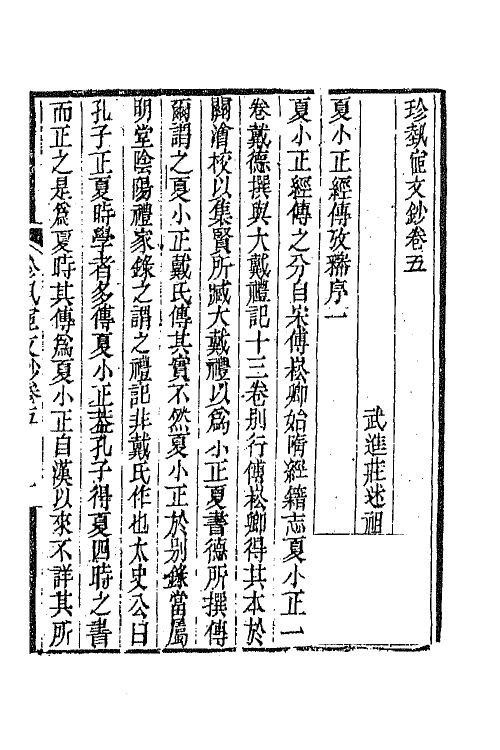 珍埶宧文鈔卷五
武進莊述祖
夏小正經傳攷釋序一
夏小正經傳之分自宋傅崧卿始隋經籍志夏小正一
卷戴德撰與大戴禮記十三卷別行傅崧卿得其本於
關澮校以集賢所臧大戴禮以爲小正夏書德所撰傳
爾謂之夏小正戴氏傳其實不然夏小正於別錄當屬
明堂陰陽禮家錄之謂之禮記非戴氏作也太史公曰
孔子正夏時學者多傳夏小正葢孔子得夏四時之書
而正之是爲夏時其傳爲夏小正自漢以來不詳其所